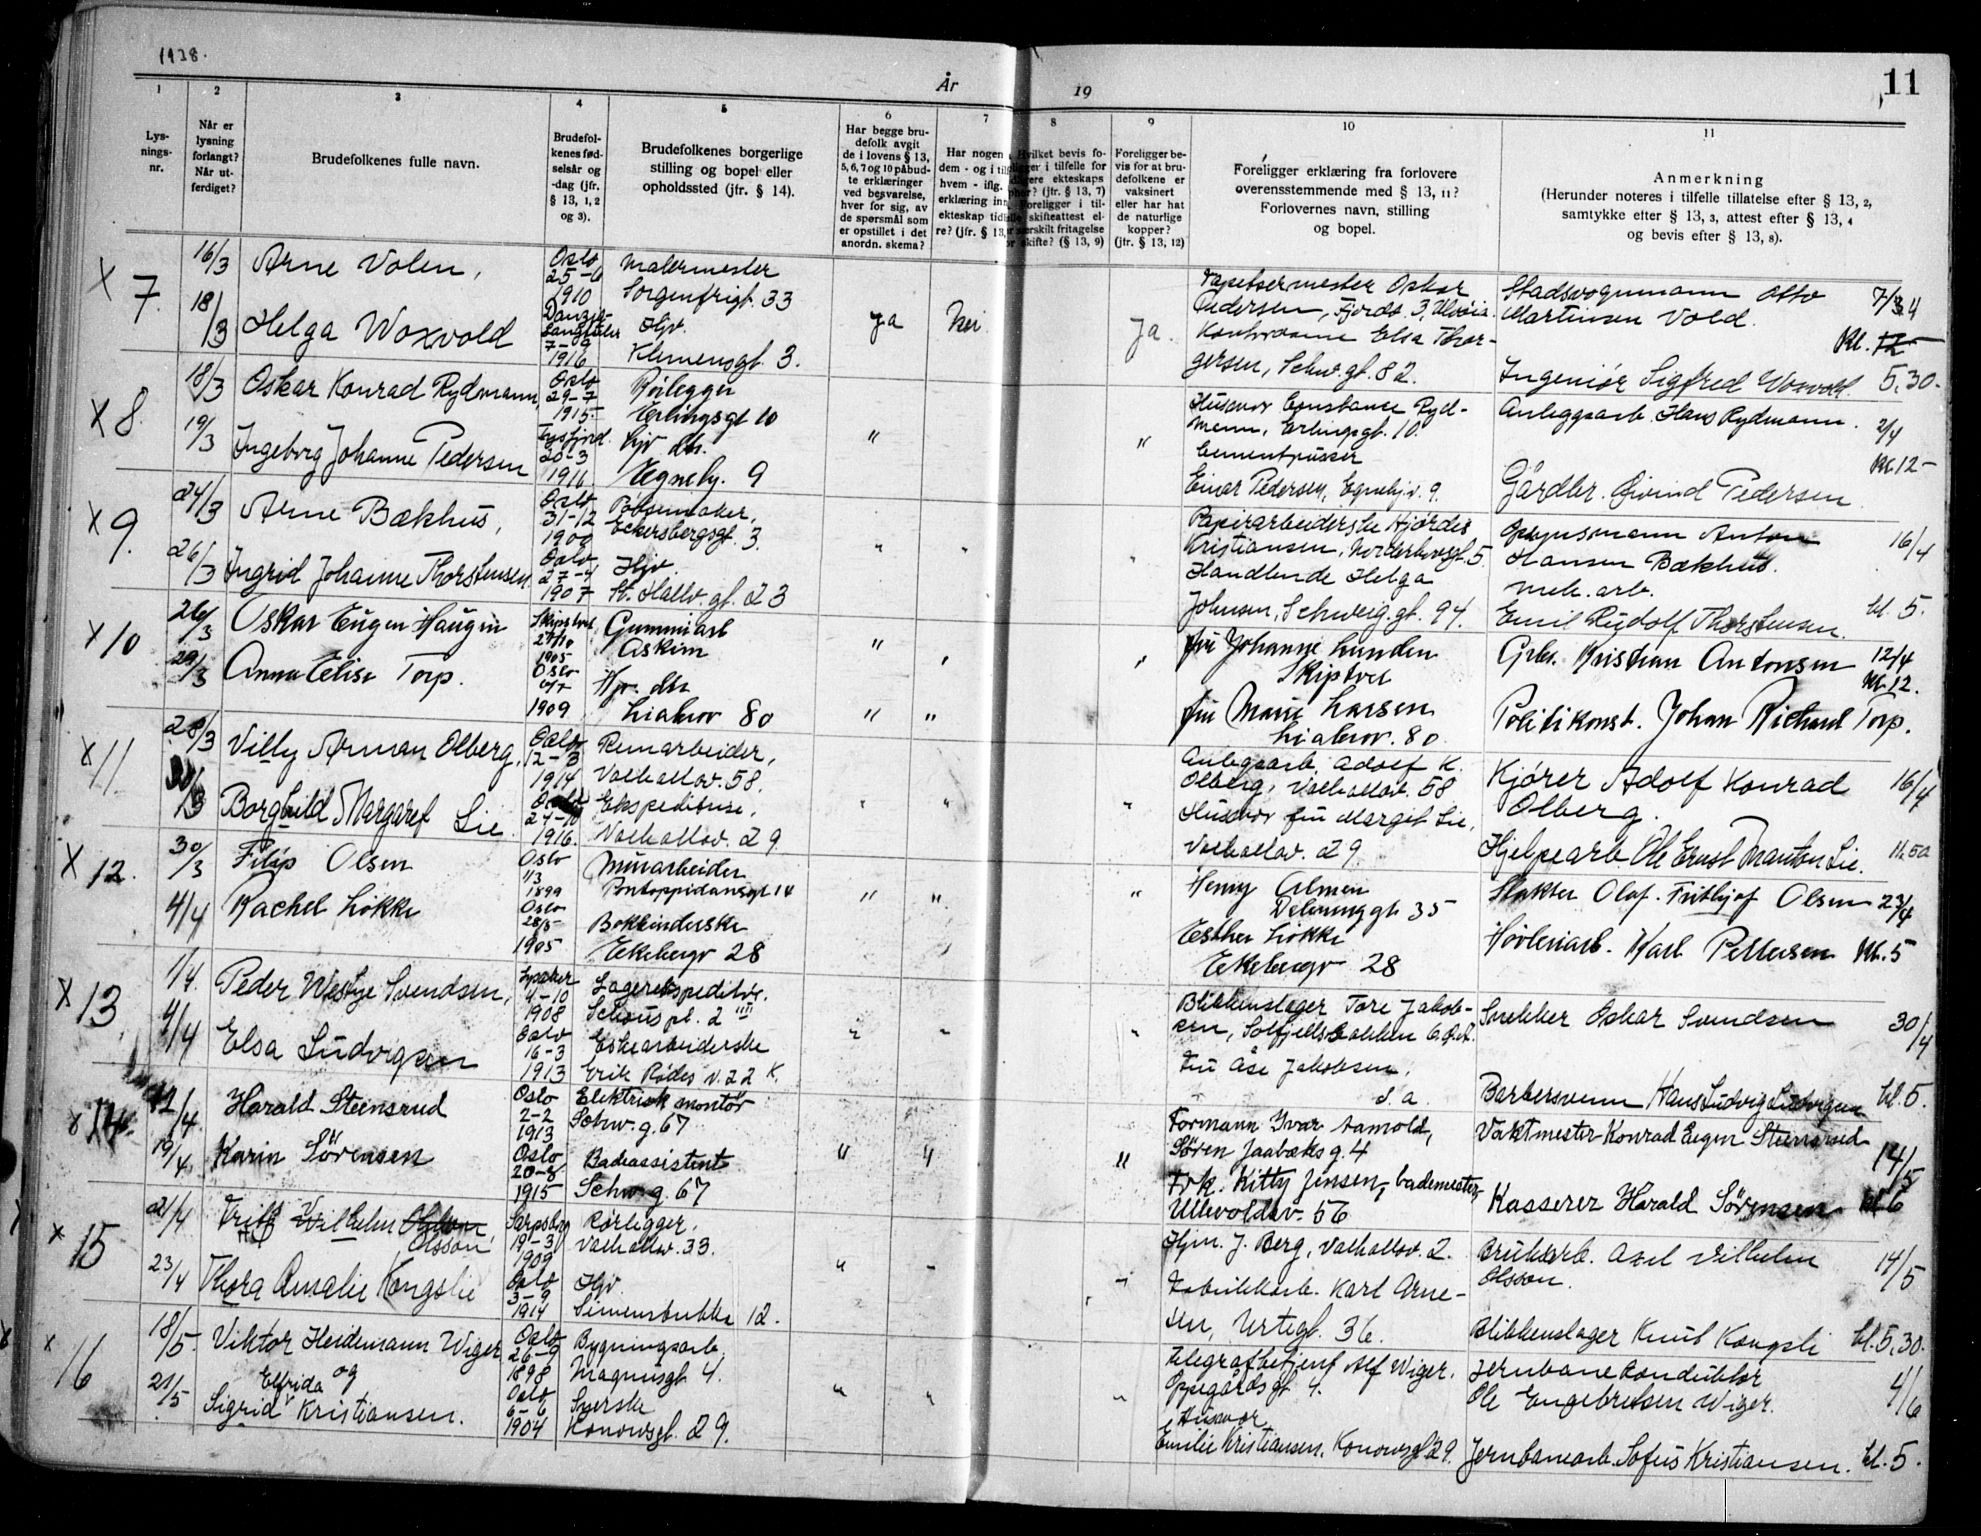 1938.
År 19
11
1 2 3 4 5 6 7 8 9 10 11
Lys-
nings-
nr.
Når er
lysning
forlangt?
Når ut-
ferdiget?
Brudefolkenes fulle navn.
Brudefol-
kenes fød-
selsår og
-dag (jfr.
§ 13, 1, 2
og 3).
Brudefolkenes borgerlige
stilling og bopel eller
opholdssted (jfr. § 14).
Har begge bru-
defolk avgit
de i lovens § 13,
5, 6, 7 og 10 påbud-
te erklæringer
ved besvarelse,
hver for sig, av
de spørsmål som
er opstillet i det
anordn. skema?
Har nogen
dem - og i til
hvem - iflg.
erklæring inn
ekteskap tid
re? (jfr. § 13,
Hvilket bevis fo-
religger i tilfelle for
ekteskaps
(jfr. § 13, 7)
Foreligger i til-
felle skifteattest el-
særskilt fritagelse
skifte? (§ 13, 9)
Foreligger be-
vis for at bru-
defolkene er
vaksinert
eller har hat
de naturlige
kopper?
(jfr. § 13, 12)
Foreligger erklæring fra forlovere
overensstemmende med § 13, 11?
Forlovernes navn, stilling
og bopel.
Anmerkning
(Herunder noteres i tilfelle tillatelse efter § 13, 2,
samtykke efter § 13, 3, attest efter § 13, 4
og bevis efter § 13, 8).
x 7.
16/3
18/3
Arne Volen,
Helga Woxvold
Oslo
25-6
1910
7-9
1916
Malermester
Sorgenfrigt. 33
Hjv.
Klemensgt. 3.
Ja
Nei
Ja.
Tapetsermester Oskar
Pedersen, Fjordv. 3,
Kontordame Elsa Thor-
gersen, Schw. gt. 82.
Stadsvognmann Otto
Martinsen Vold.
Ingeniør Sigfred Woxvold.
Kl. 12
5.30.
x 8.
18/3
19/3
Oskar Konrad Rydmann,
Ingeborg Johanne Pedersen
Oslo
29-7
1915
Tysfjord.
20-3
1916
Rørlegger
Erlingsgt 10
Hjv. dtr.
Egneby. 9
"
"
Husmor Constance Ryd-
mann, Erlingsgt. 10.
Cementpusser
Einar Pedersen, Egnehjv. 9.
Anleggsarb. Hans Rydmann.
Gårdbr. Øivind Pedersen
2/4
Kl. 12-
x 9.
24/3
26/3
Arne Bækhus,
Ingrid Johanne Thorstensen
Oslo
31-12
1900
Oslo
27-4
1907
Pølsemaker,
Eckersbergsgt. 3.
Hjv.
St. Hallv. gt. 23
"
"
"
Papirarbeiderske Hjørdis
Kristiansen, Norderhovsgt. 5.
Handlende Helga
Johnsen, Schweig. gt. 94.
Opsynsmann Anton
Hansen Bækhus.
mek. arb.
Emil Rudolf Thorstensen.
16/4
kl. 5.
x 10
26/3
29/3
Oskar Eugen Haugen
Anna Elise Torp.
Skiptvet
27/10
1905
Oslo
1909
Gummiarb
Askim
Hjv. dtr
Liabrov 80
"
"
"
"
"
fru Johanne Lunden
Skiptvet
fru Marie Larsen
Liabrov. 80
Grbr. Kristian Antonsen
Politikonst. Johan Richard Torp.
12/4
Kl. 12.
x 11
28/3
30/3
Villy Arman Olberg,
Borghild Margaret Lie.
Oslo
12-3
1914
Oslo
24-10
1916.
Remarbeider,
Valhallav. 58.
Ekspeditrise,
Valhallav. 29
"
"
"
Anlegsarb Adolf K.
Olberg, Valhallav. 58
Husmor fru Margit Lie,
Valhallav. 29.
Kjører Adolf Konrad
Olberg.
Hjelpearb Ole Ernst Manton Lie.
16/4
x 12.
30/3
4/4
Filip Olsen
Rachel Løkke
Oslo
1/3
1899
Oslo
28/5
1905
Murarbeider
Pontoppidansgt 14
Bokbinderske
Ekebergv 28
"
"
"
Henny Olmen
35
Esther Løkke
Ekebergv 28
Slakter Olaf. Frithjof Olsen
Høvleriarb. Karl Pettersen
23/4
Kl. 5
x 13
1/4.
4/4
Peder Westye Svendsen,
Elsa Ludvigsen
Lysaker
4-10
1908
Oslo
16-3
1913
Lagerekspeditør.
Schous pl. 2 IIII
Eskearbeiderske
Erik Rødes v. 22 K.
"
"
"
Blikkenslager Tore Jakob-
sen, Solfjellsbakken 6. Ø.A.
Fru Åse Jakobsen,
s. a.
Snekker Oskar Svendsen
Barbersvenn Hans Ludvig Ludvigsen
30/4
kl. 5.
x 14.
12/4.
19/4.
Harald Steensrud
Karin Sörensen
Oslo
2-2
1913
Oslo
20-8
1915
Elektrisk montör
Schw. g. 67
Badeassistent
Schw. g. 67
"
"
"
Formann Ivar Aamold,
Sören Jaabæks g. 4
Frk. Kitty Jensen, bademester,
Ullevoldsv. 56
Vaktmester Konrad Eugen Steensrud
Kasserer Harald Sörensen
14/5
Kl 6
x 15
21/4
23/4
Wilhelm
Olsson
Thora Amalie Kongslie
Sarpsborg
19-3
1909
Oslo
3-9
1914
Rørlegger.
Valhallav. 33.
Hjv.
Simensbakke 12.
"
"
"
Hjm. J. Berg, Valhallav. 2.
Fabrikkarb. Karl Arne-
sen, Urtegt. 36.
Bruksarb. Axel Vilhelm
Olsson.
Blikkenslager Knut Kongsli
14/5
kl. 5.30.
x 16
18/5.
21/5
Viktor Heidemann Wiger
og
Elfrida
Sigrid Kristiansen.
Oslo
26-9
1898
Oslo
6-6
1904
Bygningsarb,
Magnusgt 4.
Syerske
Konowsgt. 29.
"
"
"
Telegrafbetjent Alf Wiger.
Oppegårdsgt 4.
Husmor
Emilie Kristiansen. Konowsgt 29.
Jernbanekonduktør
Ole Engebretsen Wiger.
Jernbanearb. Sofus Kristiansen.
4/6
kl. 5.